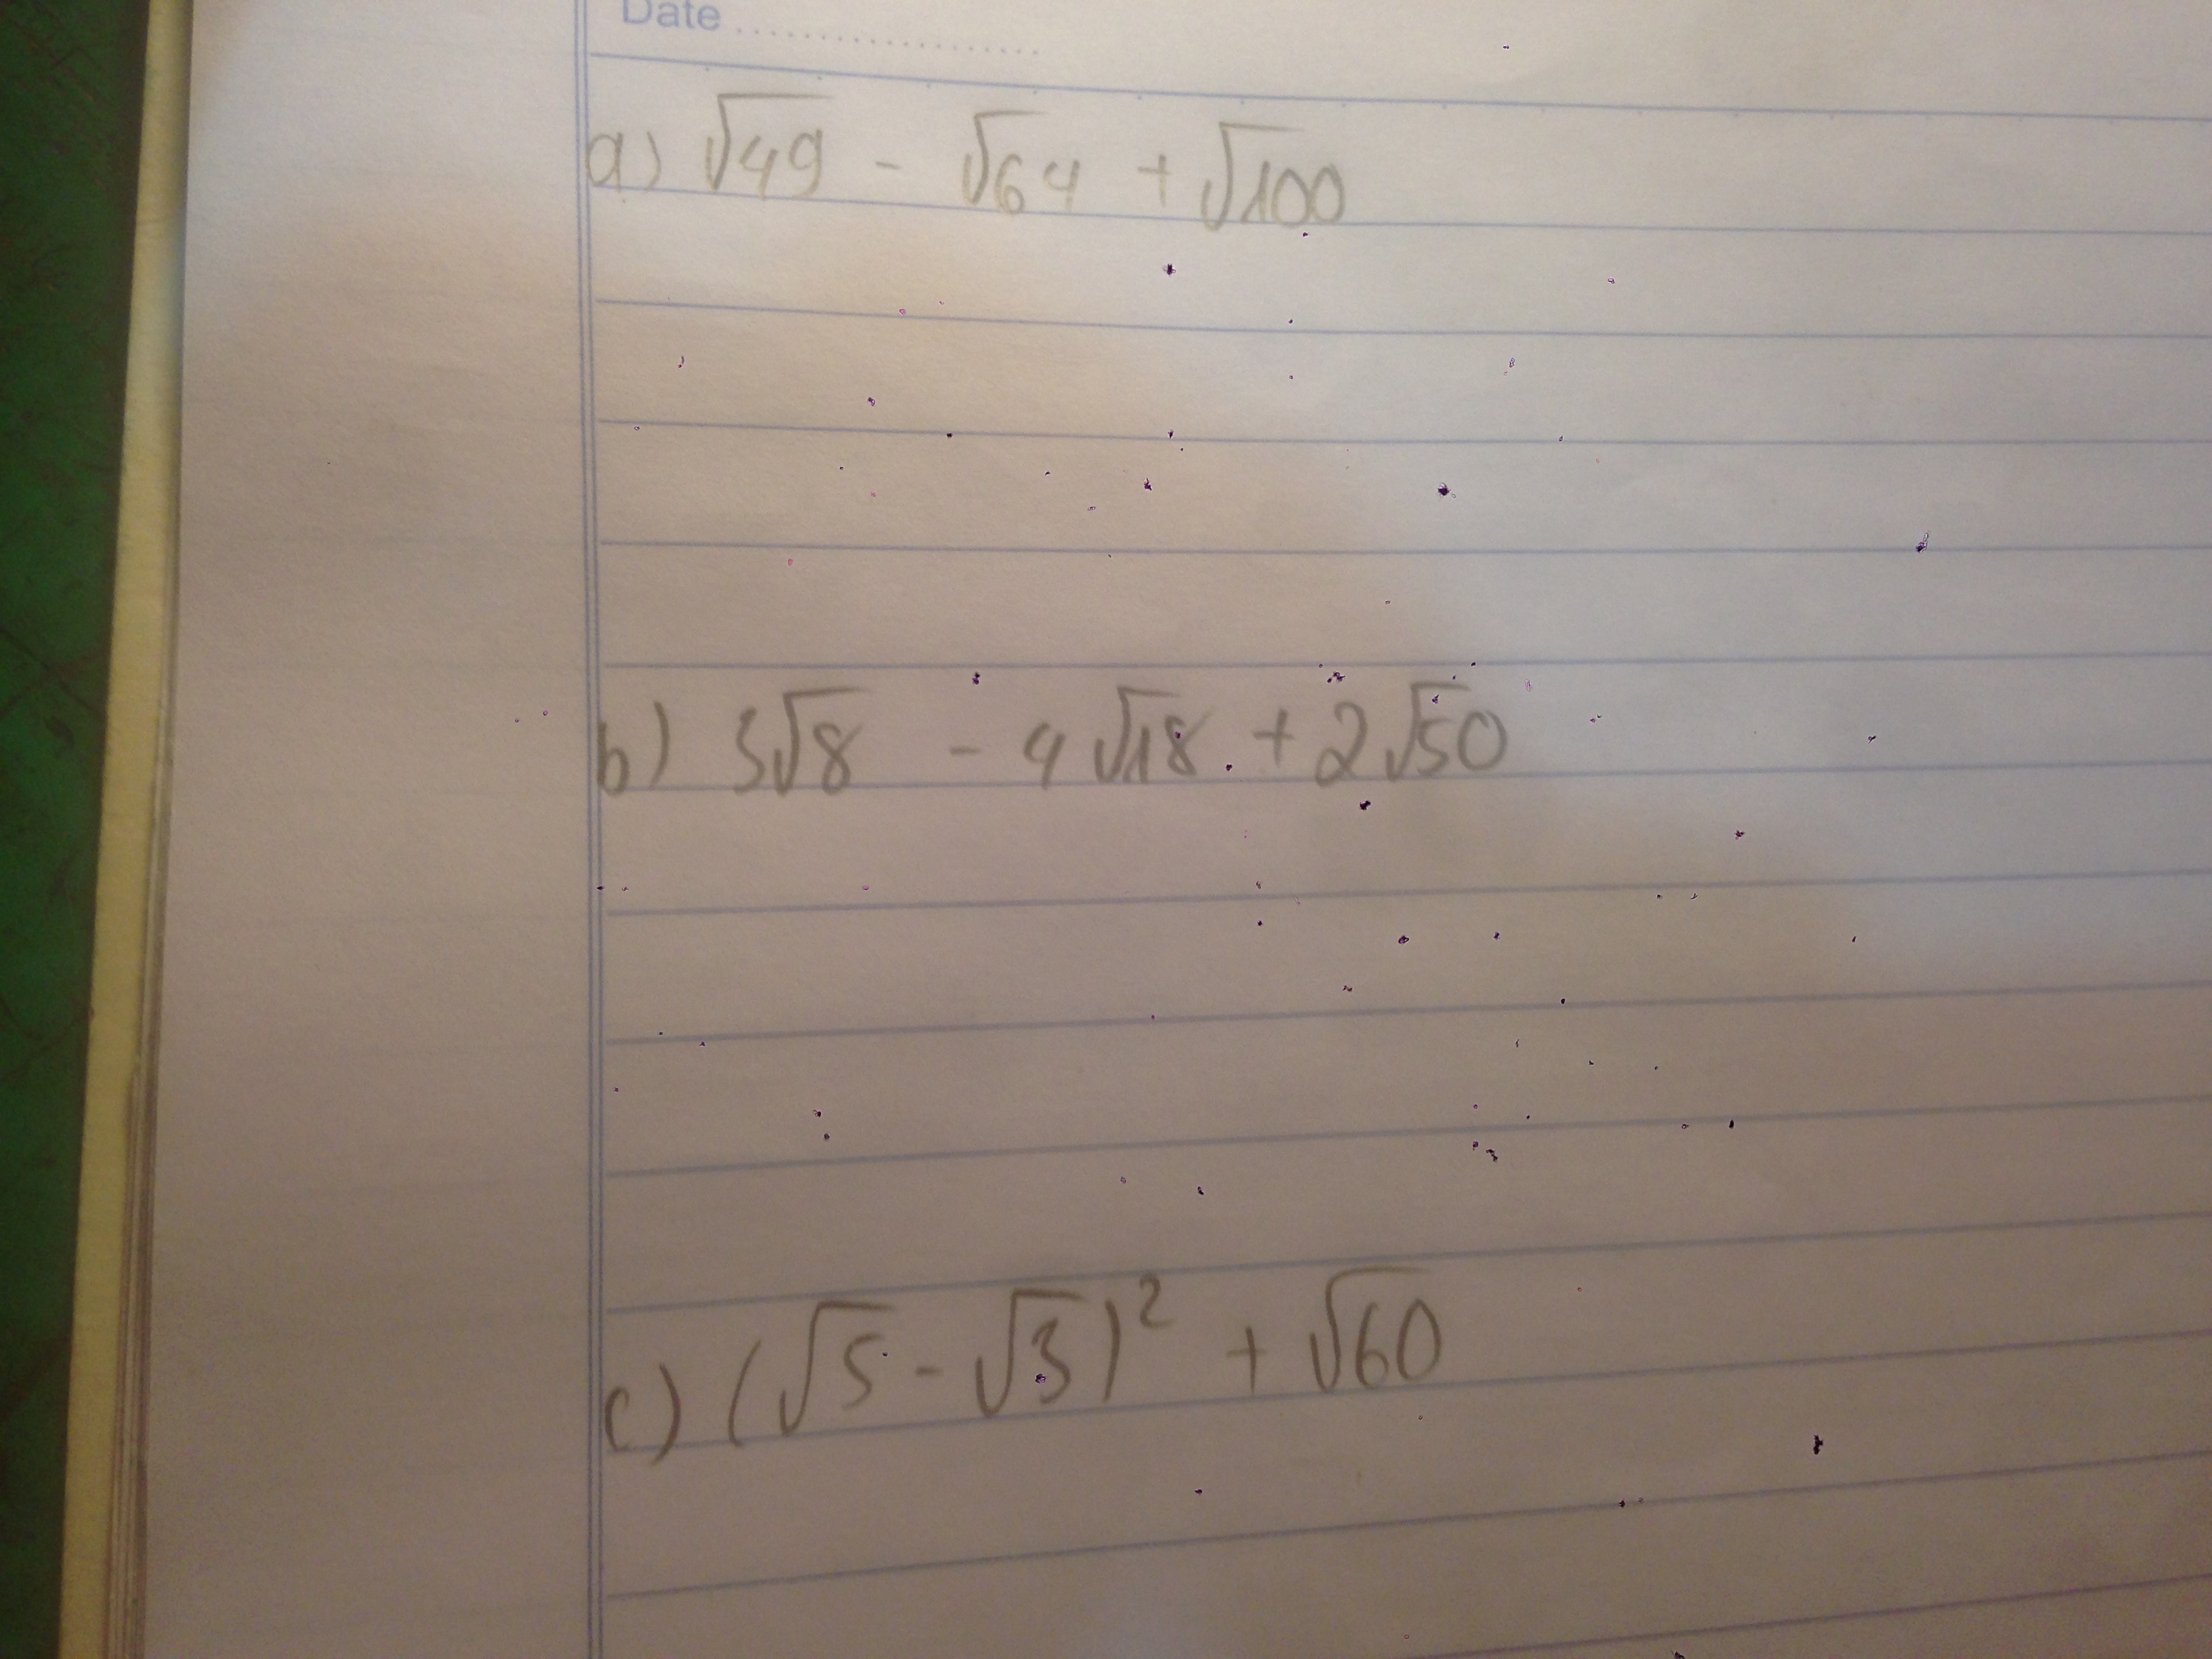 Date ....................
a) √49 - √64 + √100
b) 3√8 - 4√18 + 2√50
c) (√5 - √3)² + √60